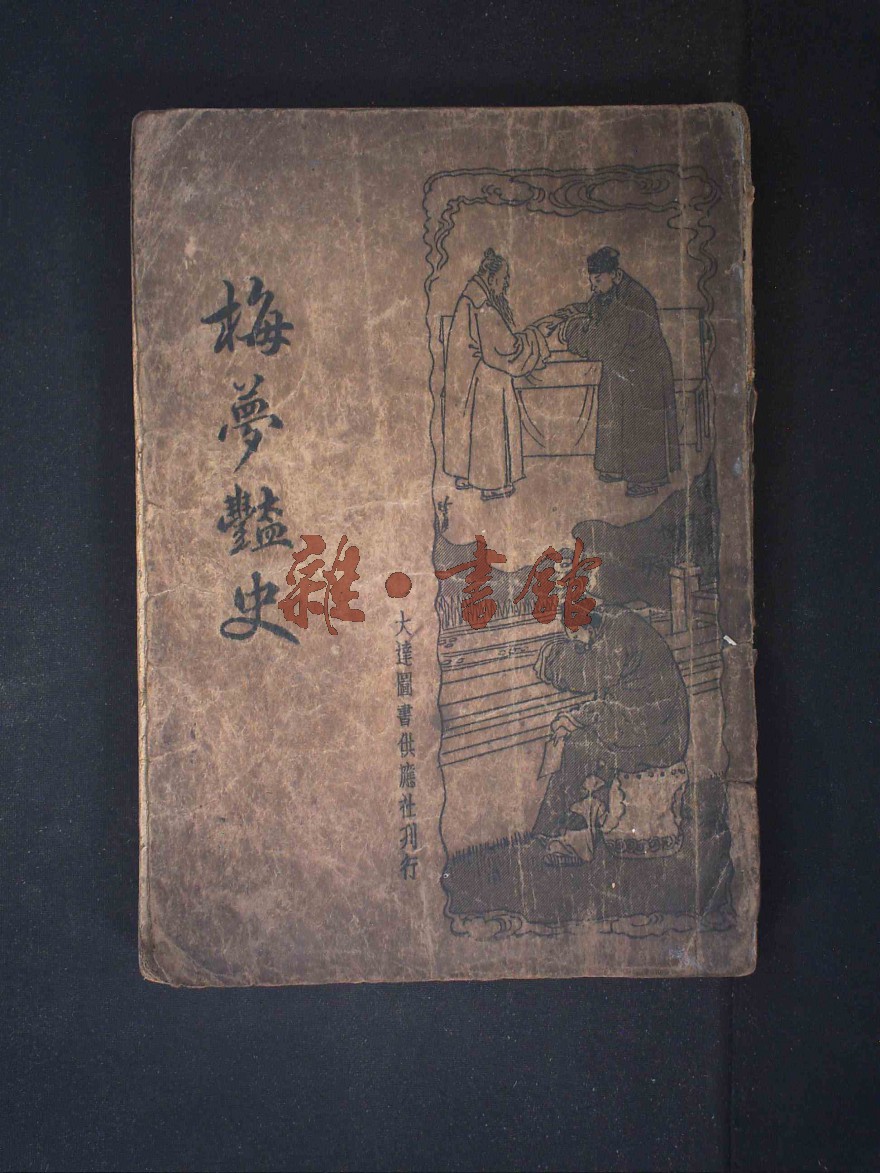 梅夢豔史
大達圖書供應社刊行
雜·書館